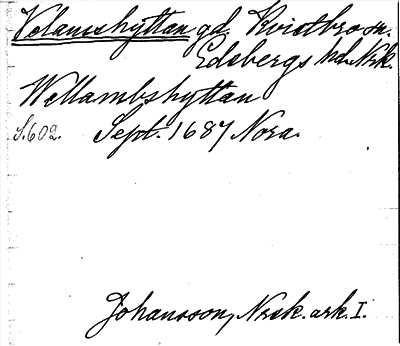 Velamshyttan gd. Kvistbro sn.
Edsbergs hd. Nrk.
Wellambshyttan
S.602. Sept. 1687 Nora.
Johansson, Nrsk. ark. I.